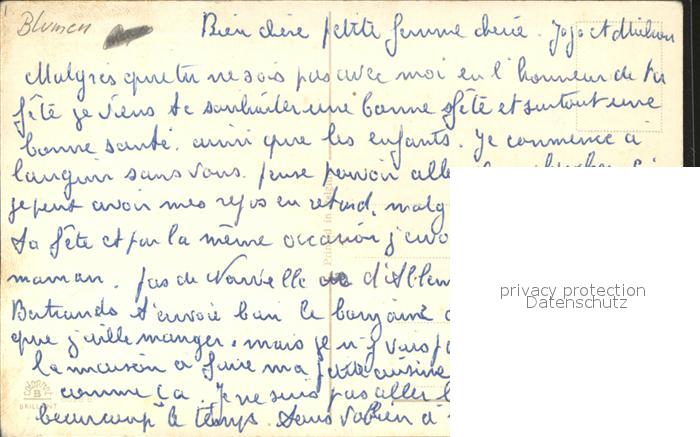 Blumen
Bien chère petite femme chérie. Jojo et
Malgrès que tu ne sois pas avec moi en l'honneur de ta
fête je viens te souhaiter une bonne fête et surtout une
bonne santé. ainsi que les enfants. Je commence à
languir sans vous. pense pouvoir alle
je peut avoir mes repos en retard, malg
ta fête et par la même occasion j'envo
maman. pas de Nouvelle d'Allem
Bertrando t'envoie bien le bonjour
que j'aille manger, mais je n'y vais pa
la maison a faire ma petite cuisine
comme ça. Je ne suis pas aller
beaucoup le temps. Sans
Printed in Belgi
B
BRILLANT
privacy protection
Datenschutz